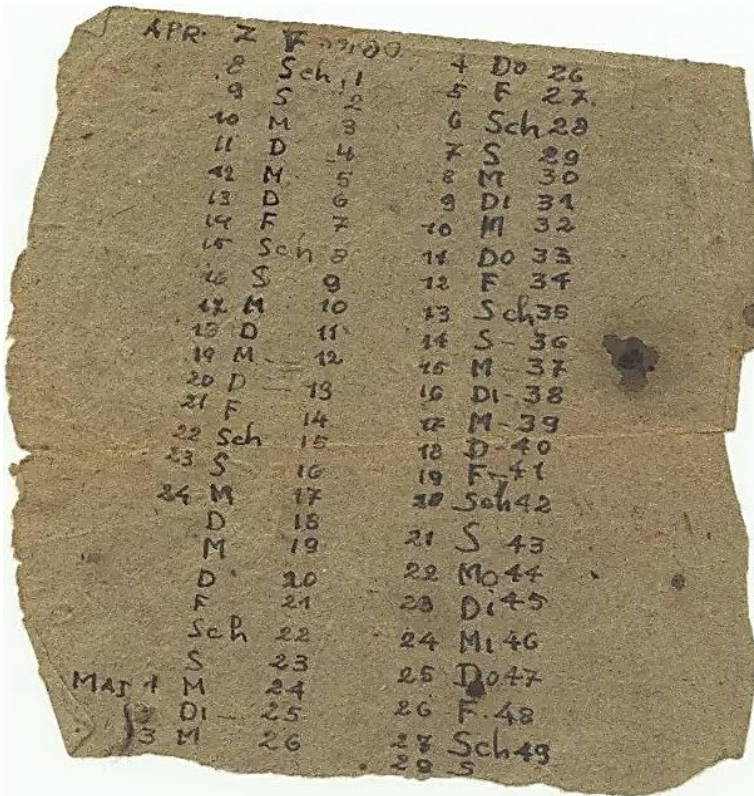 APR. 7 F
8 Sch 1
9 S 2
10 M 3
11 D 4
12 M 5
13 D 6
14 F 7
15 Sch 8
16 S 9
17 M 10
18 D 11
19 M - 12
20 D - 13
21 F 14
22 Sch 15
23 S 16
24 M 17
D 18
M 19
D 20
F 21
Sch 22
S 23
MAI 1 M 24
2 DI - 25
3 M 26
4 Do 26
5 F 27.
6 Sch 28
7 S 29
8 M 30
9 DI 31
10 M 32
11 DO 33
12 F 34
13 Sch 35
14 S - 36
15 M - 37
16 DI - 38
17 M - 39
18 D - 40
19 F - 41
20 Sch 42
21 S 43
22 Mo 44
23 Di 45
24 MI 46
25 Do 47
26 F. 48
27 Sch 49
28 S